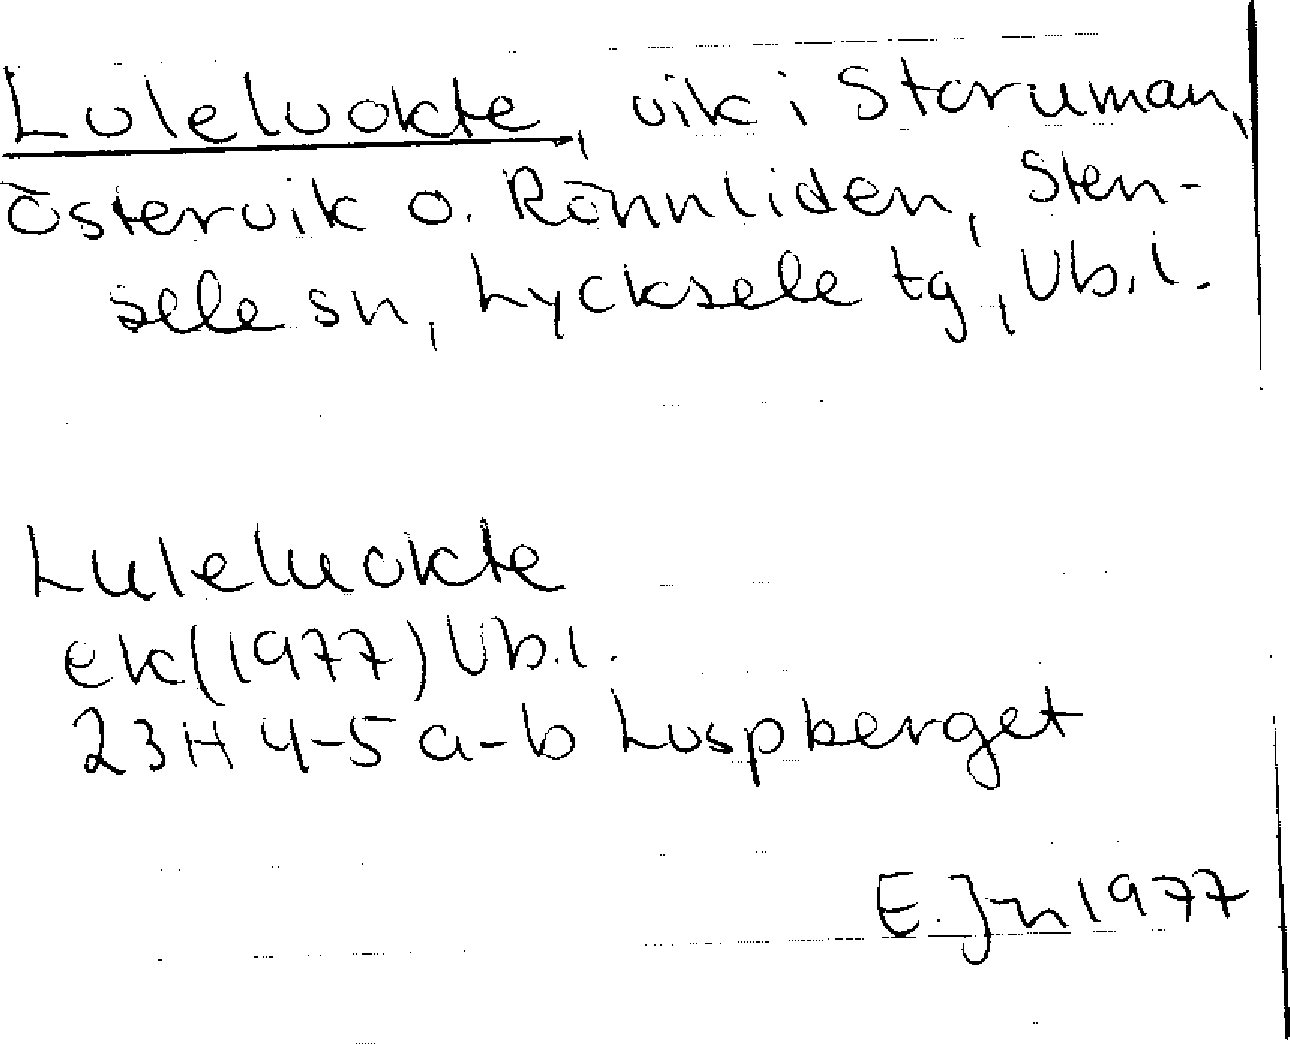 Luleluokte, vik i Storuman,
Östervik o. Rönnliden, Sten-
sele sn, Lycksele tg, Vb.l.
Luleluokte
ek (1977) Vb.l.
23H 4-5 a-b Luspberget
E. Jn 1977